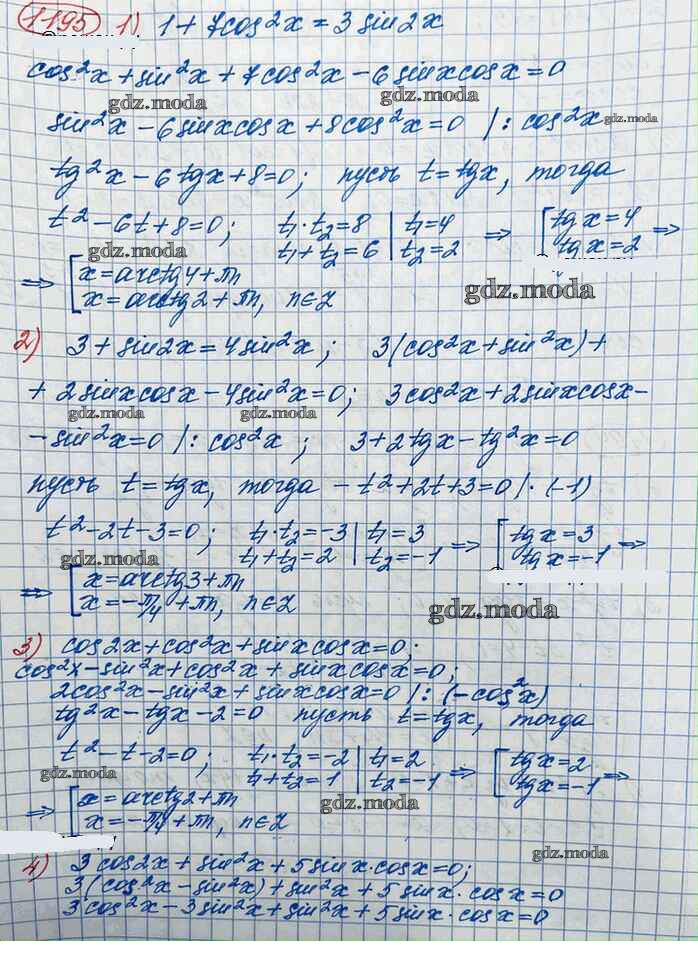 1195 1) 1 + 7cos²x = 3 sin2x
cos²x + sin²x + 7cos²x - 6sinxcosx = 0
gdz.moda gdz.moda
sin²x - 6sinxcosx + 8cos²x = 0 |: cos²x gdz.moda
tg²x - 6tgx + 8 = 0; пусть t = tgx, тогда
t² - 6t + 8 = 0; t₁·t₂ = 8 | t₁ = 4 ⇒ [ tgx = 4 ⇒
gdz.moda t₁ + t₂ = 6 | t₂ = 2 tgx = 2
⇒ [ x = arctg4 + πn
x = arctg2 + πn, n∈Z gdz.moda
2) 3 + sin2x = 4sin²x; 3(cos²x + sin²x) +
+ 2sinxcosx - 4sin²x = 0; 3cos²x + 2sinxcosx -
gdz.moda gdz.moda
- sin²x = 0 |: cos²x; 3 + 2tgx - tg²x = 0
пусть t = tgx, тогда - t² + 2t + 3 = 0 |·(-1)
t² - 2t - 3 = 0; t₁·t₂ = -3 | t₁ = 3 ⇒ [ tgx = 3 ⇒
gdz.moda t₁ + t₂ = 2 | t₂ = -1 tgx = -1
⇒ [ x = arctg3 + πn
x = -π/4 + πn, n∈Z gdz.moda
3) cos2x + cos²x + sinxcosx = 0;
cos²x - sin²x + cos²x + sinxcosx = 0;
2cos²x - sin²x + sinxcosx = 0 |: (-cos²x)
tg²x - tgx - 2 = 0 пусть t = tgx, тогда
t² - t - 2 = 0; t₁·t₂ = -2 | t₁ = 2 ⇒ [ tgx = 2 ⇒
gdz.moda t₁ + t₂ = 1 | t₂ = -1 tgx = -1
⇒ [ x = arctg2 + πn gdz.moda
x = -π/4 + πn, n∈Z
4) 3cos2x + sin²x + 5sinx·cosx = 0; gdz.moda
3(cos²x - sin²x) + sin²x + 5sinx·cosx = 0
3cos²x - 3sin²x + sin²x + 5sinx·cosx = 0